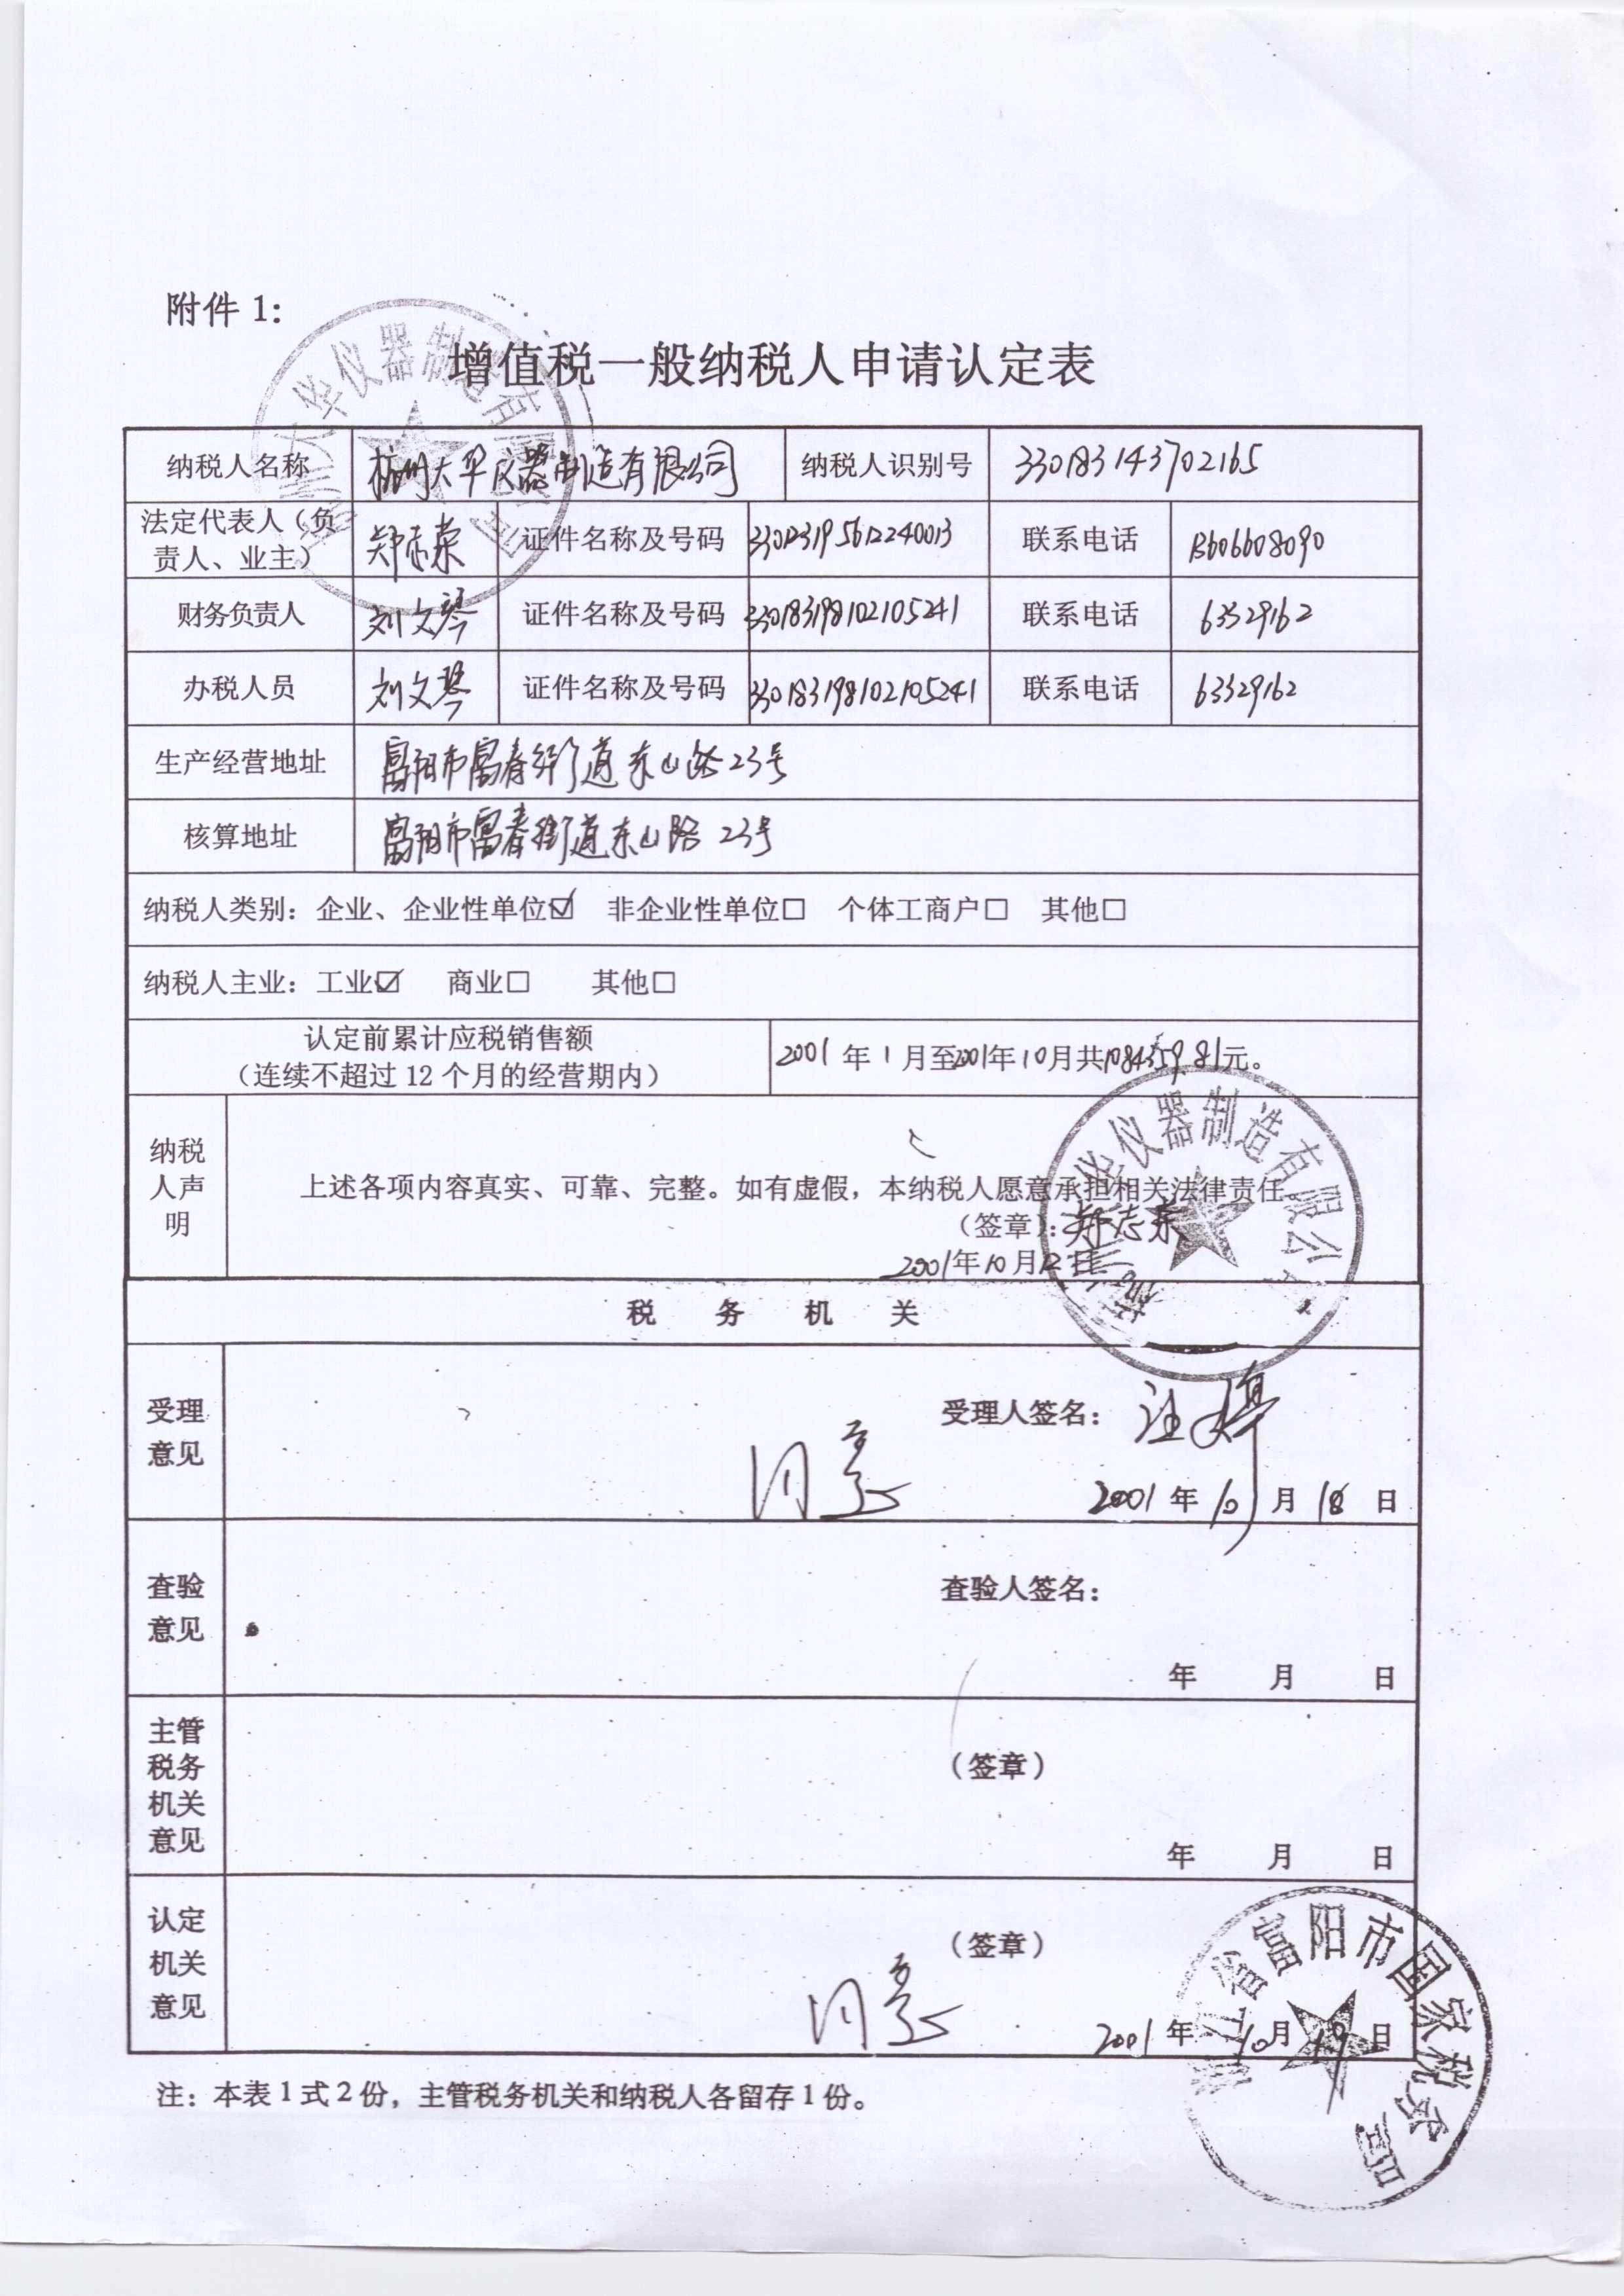 附件 1:
增值税一般纳税人申请认定表
纳税人名称 杭州大华仪器制造有限公司 纳税人识别号 330183143702165
法定代表人（负责人、业主） 郑志荣 证件名称及号码 330123195612240013 联系电话 13606608090
财务负责人 刘文琴 证件名称及号码 330183198102105241 联系电话 63329162
办税人员 刘文琴 证件名称及号码 330183198102105241 联系电话 63329162
生产经营地址 富阳市富春街道东山路23号
核算地址 富阳市富春街道东山路23号
纳税人类别：企业、企业性单位☑ 非企业性单位□ 个体工商户□ 其他□
纳税人主业：工业☑ 商业□ 其他□
认定前累计应税销售额
（连续不超过 12 个月的经营期内） 2001 年 1 月至2001年10月共1084359.81元。
纳税人声明
上述各项内容真实、可靠、完整。如有虚假，本纳税人愿意承担相关法律责任
（签章）：郑志荣
2001年10月12日
杭州大华仪器制造有限公司
税 务 机 关
受理意见 受理人签名： 汪婷
同意
2001 年 10 月 18 日
查验意见 查验人签名：
年 月 日
主管税务机关意见 （签章）
年 月 日
认定机关意见 （签章）
同意
2001 年 10月 19 日
浙江省富阳市国家税务局
注：本表 1 式 2 份，主管税务机关和纳税人各留存 1 份。